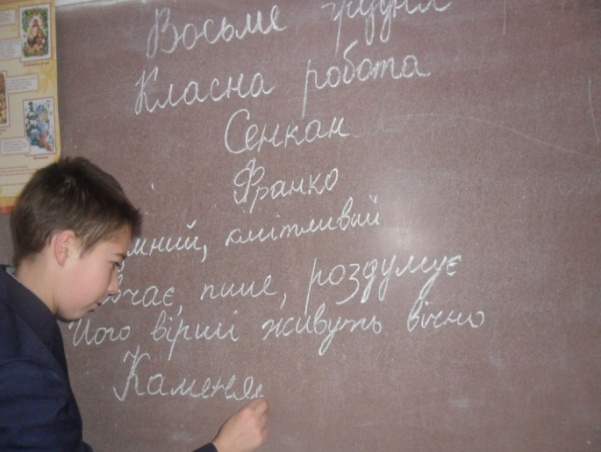 Восьме грудня
Класна робота
Сенкан
Франко
кмітливий
пише, роздумує
Його вірші живуть вічно
Каменя